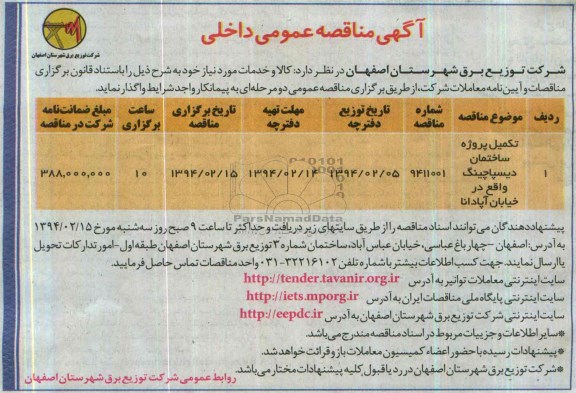 شرکت توزیع برق شهرستان اصفهان
آگهی مناقصه عمومی داخلی
شرکت توزیع برق شهرستان اصفهان در نظر دارد: کالا و خدمات مورد نیاز خود به شرح ذیل را باستناد قانون برگزاری
مناقصات و آیین نامه معاملات شرکت، از طریق برگزاری مناقصه عمومی دو مرحله‌ای به پیمانکار واجد شرایط واگذار نماید.
ردیف موضوع مناقصه شماره مناقصه تاریخ توزیع دفترچه مهلت تهیه دفترچه تاریخ برگزاری مناقصه ساعت برگزاری مبلغ ضمانت‌نامه شرکت در مناقصه
۱ تکمیل پروژه ساختمان دیسپاچینگ واقع در خیابان آپادانا ۹۴۱۱۰۰۱ ۱۳۹۴/۰۲/۰۵ ۱۳۹۴/۰۲/۱۴ ۱۳۹۴/۰۲/۱۵ ۱۰ ۳۸۸,۰۰۰,۰۰۰
ParsNamadData
پیشنهاددهندگان می‌توانند اسناد مناقصه را از طریق سایتهای زیر دریافت و حداکثر تا ساعت ۹ صبح روز سه‌شنبه مورخ ۱۳۹۴/۰۲/۱۵
به آدرس: اصفهان - چهارباغ عباسی، خیابان عباس آباد، ساختمان شماره ۳ توزیع برق شهرستان اصفهان طبقه اول - امور تدارکات تحویل
یا ارسال نمایند. جهت کسب اطلاعات بیشتر با شماره تلفن ۳۲۲۱۶۱۰۲-۰۳۱ واحد مناقصات تماس حاصل فرمایید.
سایت اینترنتی معاملات توانیر به آدرس http://tender.tavanir.org.ir
سایت اینترنتی پایگاه ملی مناقصات ایران به آدرس http://iets.mporg.ir
سایت اینترنتی شرکت توزیع برق شهرستان اصفهان به آدرس http://eepdc.ir
*سایر اطلاعات و جزییات مربوط در اسناد مناقصه مندرج می‌باشد.
*پیشنهادات رسیده با حضور اعضاء کمیسیون معاملات باز و قرائت خواهد شد.
*شرکت توزیع برق شهرستان اصفهان در رد یا قبول کلیه پیشنهادات مختار می‌باشد.
روابط عمومی شرکت توزیع برق شهرستان اصفهان